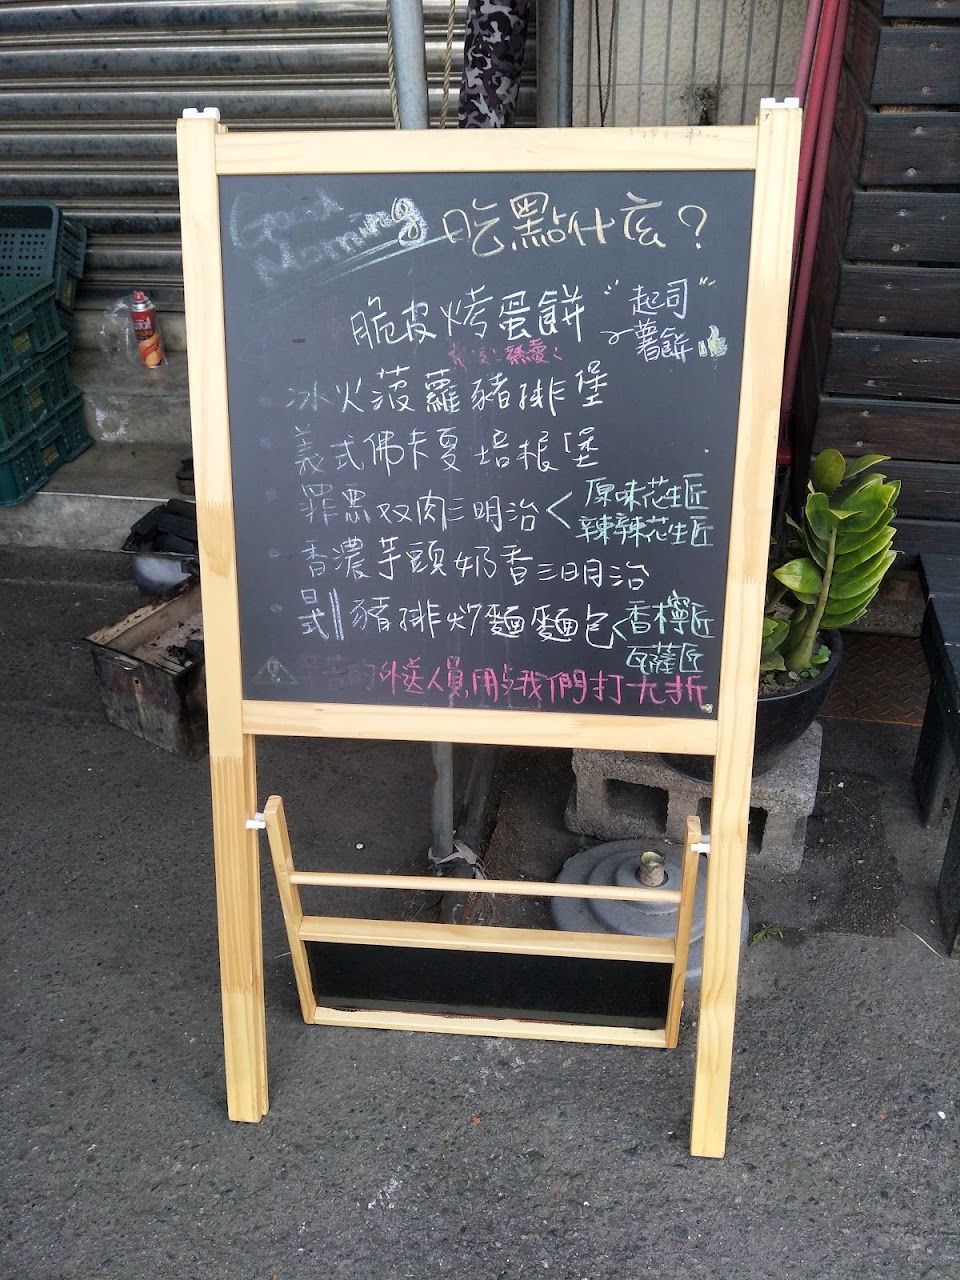 Good Morning 吃點什么?
脆皮烤蛋餅 "起司"
薯餅
熱愛
冰火菠蘿豬排堡
義式佛卡夏培根堡
罪惡双肉三明治 < 原味花生匠
辣辣花生匠
香濃芋頭奶香三明治
日式豬排炒麵麵包 < 香檸匠
瓦薩匠
的外送人員,用与我們打九折